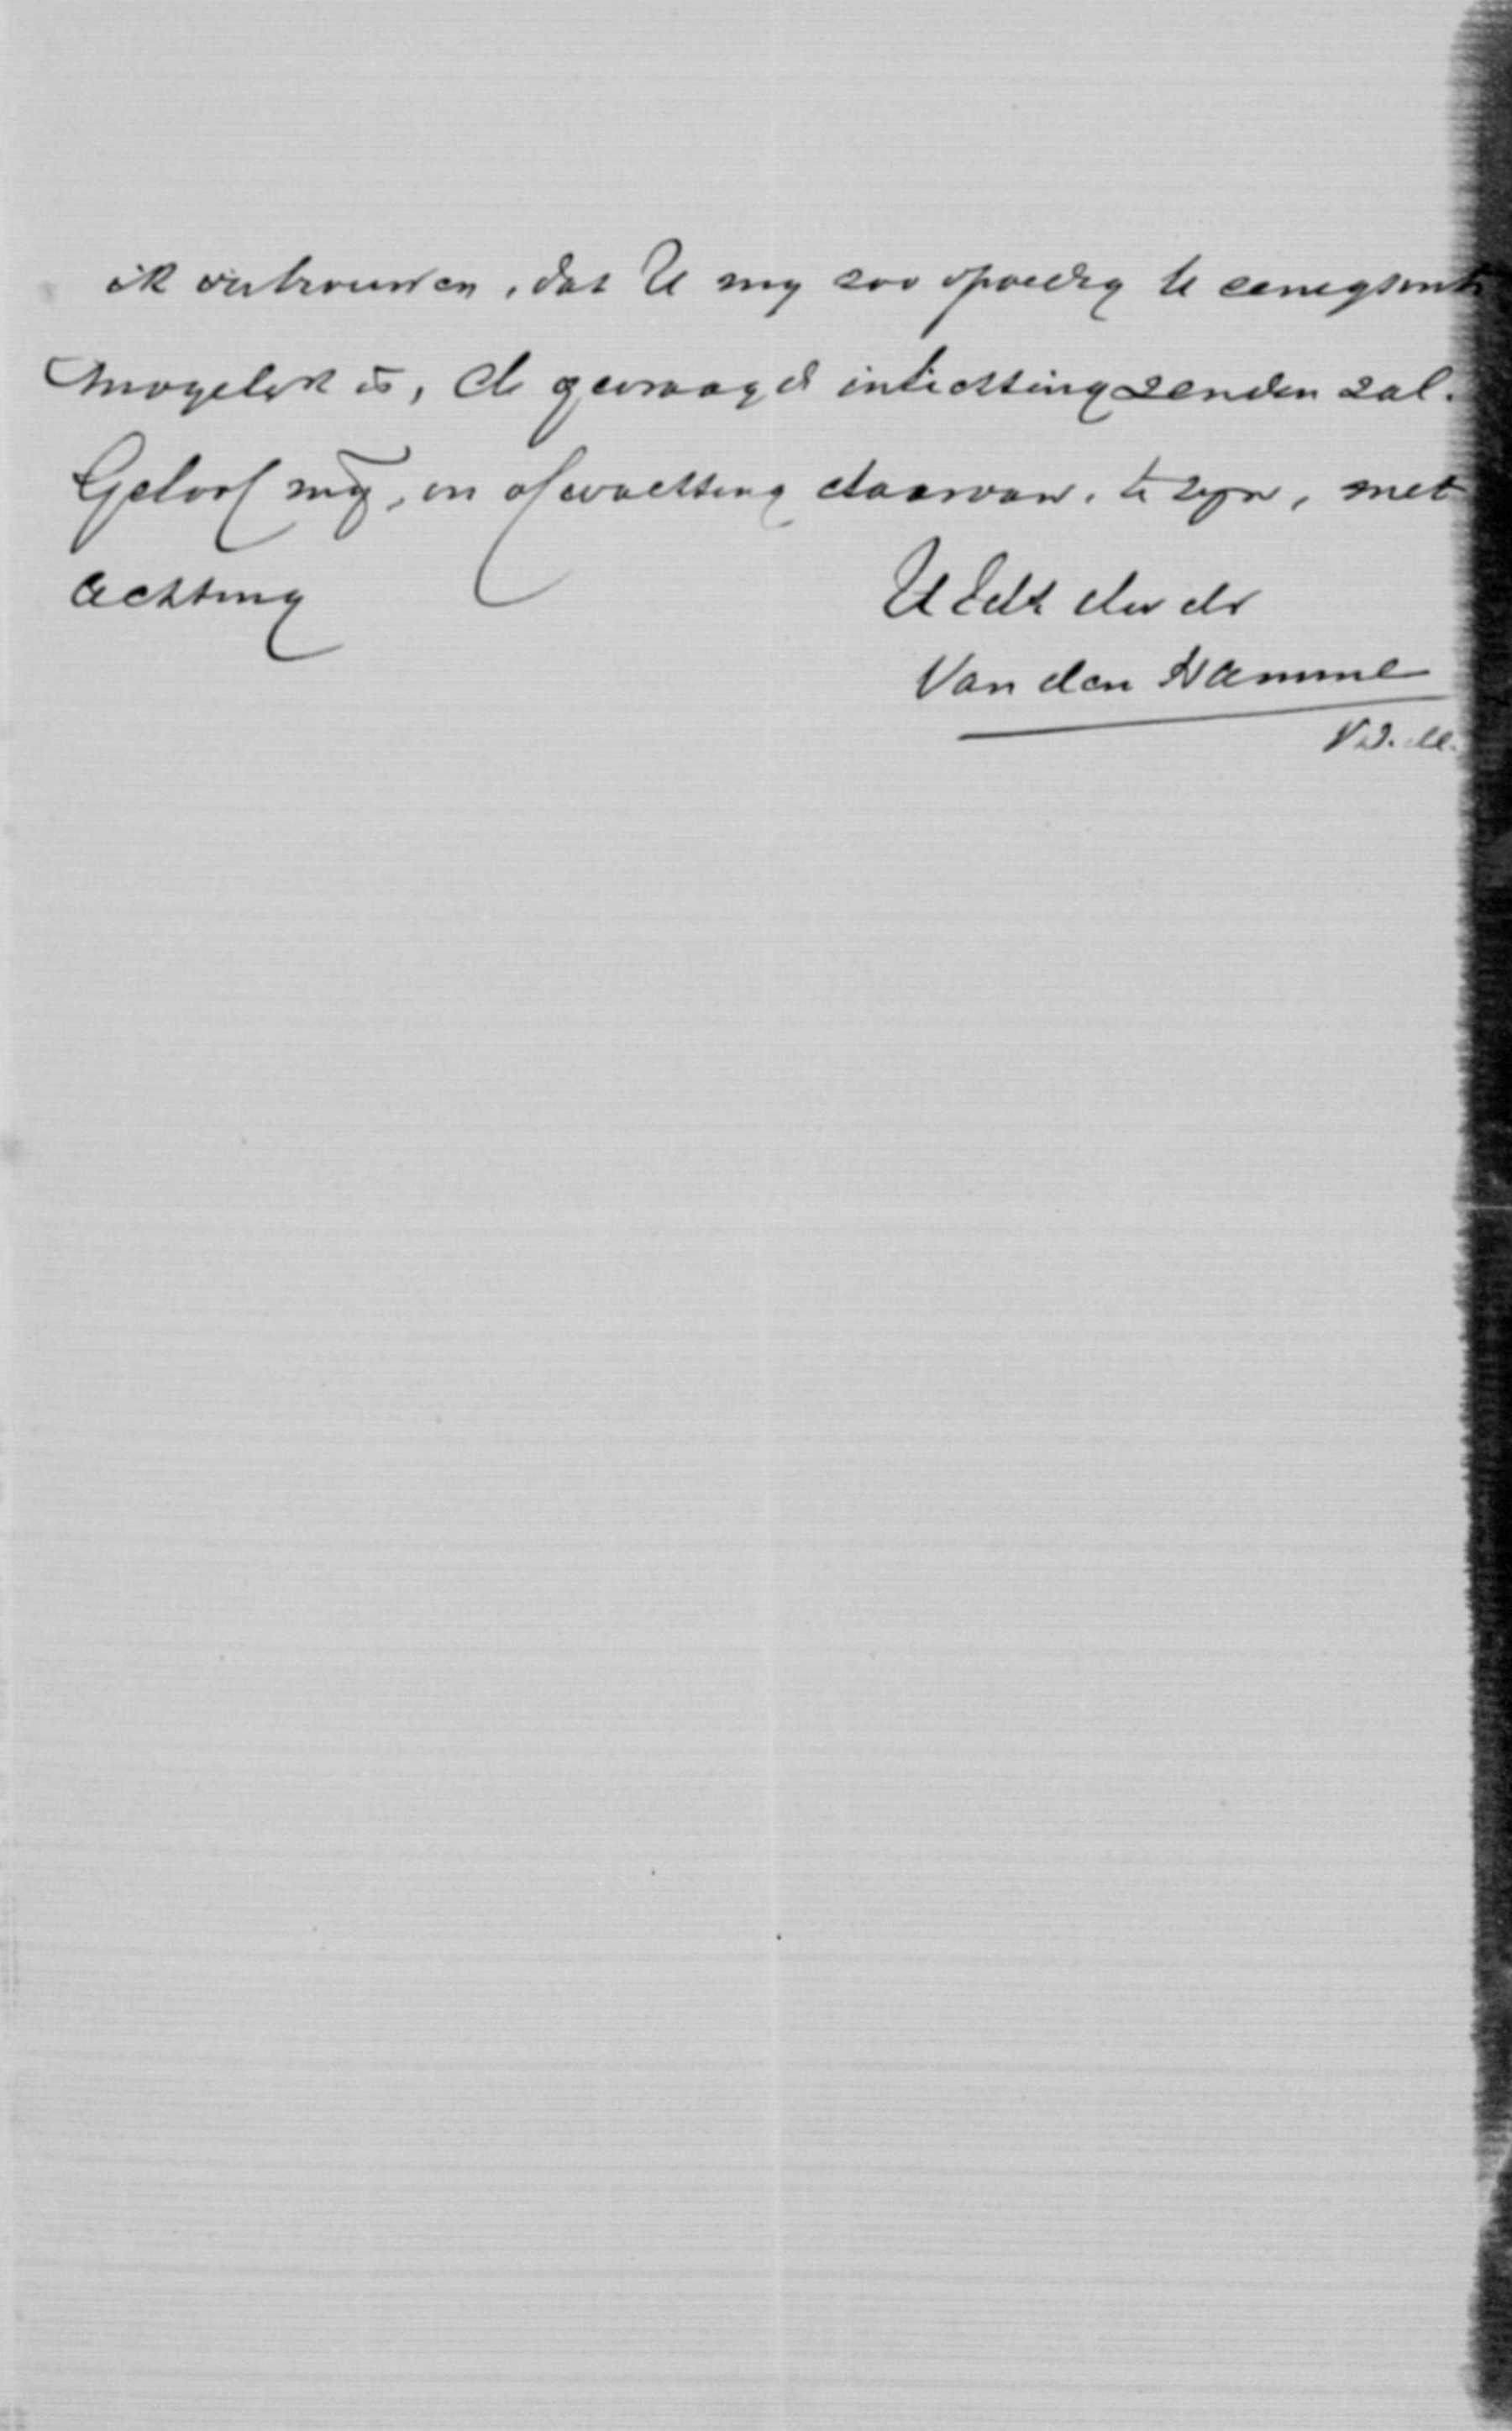 ik vertrouwen, dat U mij zoo spoedig te eenigszints
mogelijk is, de gevraagde inlichting zenden zal.
Geloof mij, in afwachting daarvan, te zijn, met
achting
UEdt dw dr
Van den Hamme
V.D.M.